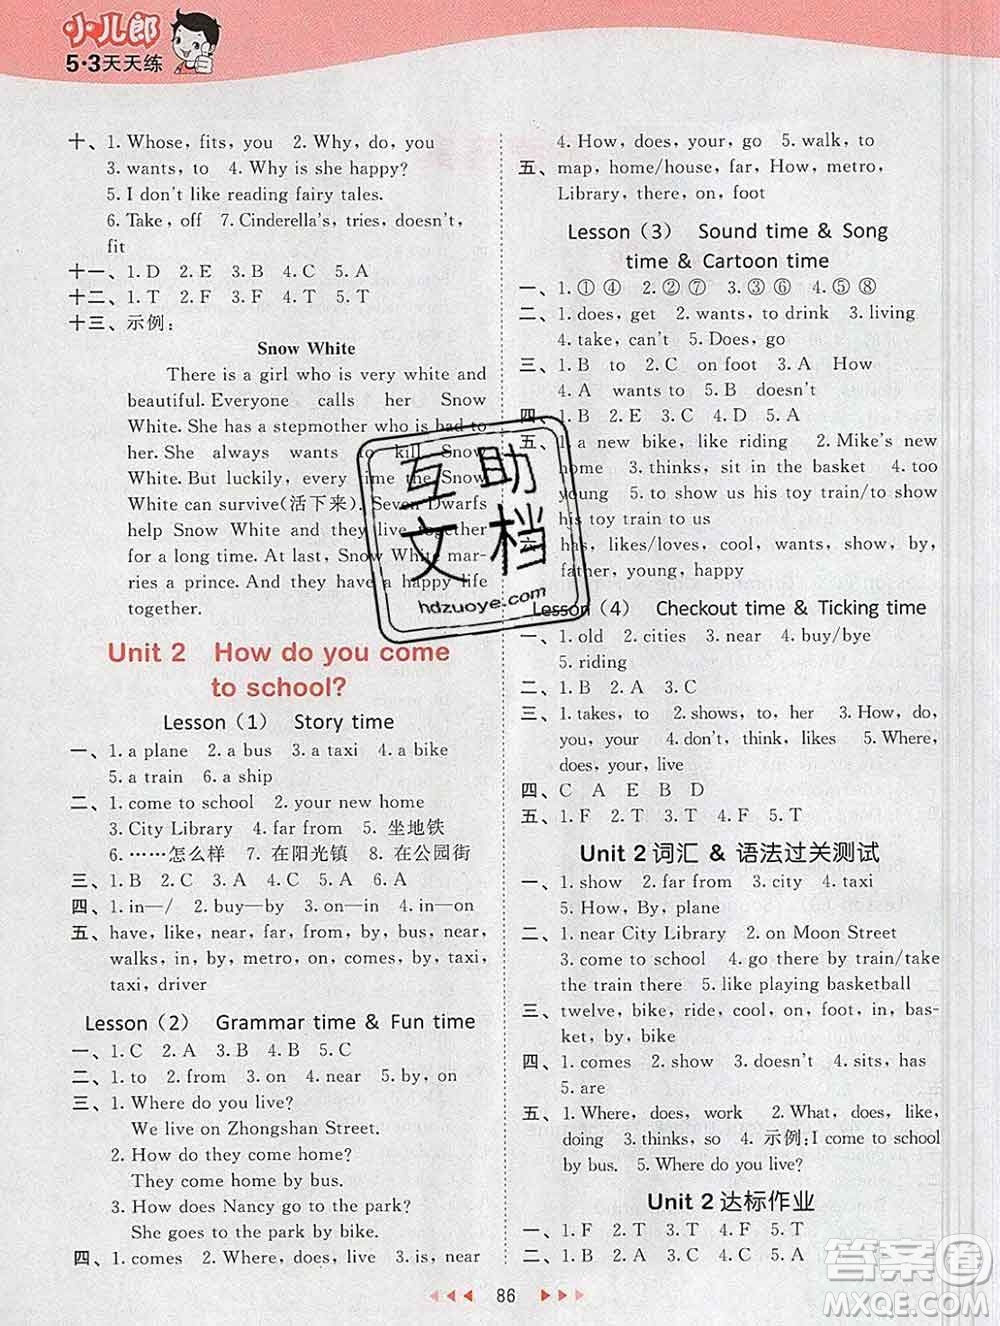 小儿郎
5·3天天练
十、1. Whose, fits, you 2. Why, do, you
3. wants, to 4. Why is she happy?
5. I don't like reading fairy tales.
6. Take, off 7. Cinderella's, tries, doesn't,
fit
十一、1. D 2. E 3. B 4. C 5. A
十二、1. T 2. F 3. F 4. T 5. T
十三、示例:
Snow White
There is a girl who is very white and
beautiful. Everyone calls her Snow
White. She has a stepmother who is bad to
her. She always wants to kill Snow
White. But luckily, every time the Snow
White can survive(活下来). Seven Dwarfs
help Snow White and they live together
for a long time. At last, Snow White mar-
ries a prince. And they have a happy life
together.
Unit 2 How do you come
to school?
Lesson (1) Story time
一、1. a plane 2. a bus 3. a taxi 4. a bike
5. a train 6. a ship
二、1. come to school 2. your new home
3. City Library 4. far from 5. 坐地铁
6. ……怎么样 7. 在阳光镇 8. 在公园街
三、1. B 2. C 3. A 4. C 5. A
四、1. in—/ 2. buy—by 3. on—in 4. in—on
五、have, like, near, far, from, by, bus, near,
walks, in, by, metro, on, comes, by, taxi,
taxi, driver
Lesson (2) Grammar time & Fun time
一、1. C 2. A 3. A 4. B 5. C
二、1. to 2. from 3. on 4. near 5. by, on
三、1. Where do you live?
We live on Zhongshan Street.
2. How do they come home?
They come home by bus.
3. How does Nancy go to the park?
She goes to the park by bike.
四、1. comes 2. Where, does, live 3. is, near
4. How, does, your, go 5. walk, to
五、map, home/house, far, How, metro,
Library, there, on, foot
Lesson (3) Sound time & Song
time & Cartoon time
一、1. ①④ 2. ②⑦ 3. ③⑥ 4. ⑤⑧
二、1. does, get 2. wants, to drink 3. living
4. take, can't 5. Does, go
三、1. B to 2. C on foot 3. A How
4. A wants to 5. B doesn't
四、1. B 2. E 3. C 4. D 5. A
五、1. a new bike, like riding 2. Mike's new
home 3. thinks, sit in the basket 4. too
young 5. to show us his toy train/to show
his toy train to us
六、has, likes/loves, cool, wants, show, by,
father, young, happy
Lesson (4) Checkout time & Ticking time
一、1. old 2. cities 3. near 4. buy/bye
5. riding
二、1. A 2. A 3. C
三、1. takes, to 2. shows, to, her 3. How, do,
you, your 4. don't, think, likes 5. Where,
does, your, live
四、C A E B D
五、1. F 2. T 3. T 4. F 5. T
Unit 2 词汇 & 语法过关测试
一、1. show 2. far from 3. city 4. taxi
5. How, By, plane
二、1. near City Library 2. on Moon Street
3. come to school 4. go there by train/take
the train there 5. like playing basketball
三、twelve, bike, ride, cool, on, foot, in, bas-
ket, by, bike
四、1. comes 2. show 3. doesn't 4. sits, has
5. are
五、1. Where, does, work 2. What, does, like,
doing 3. thinks, so 4. 示例:I come to school
by bus. 5. Where do you live?
Unit 2 达标作业
一、1. F 2. T 3. T 4. F 5. T
二、1. B 2. A 3. C 4. C 5. A
86
互助
文档
hdzuoye.com
答案圈
MXQE.COM